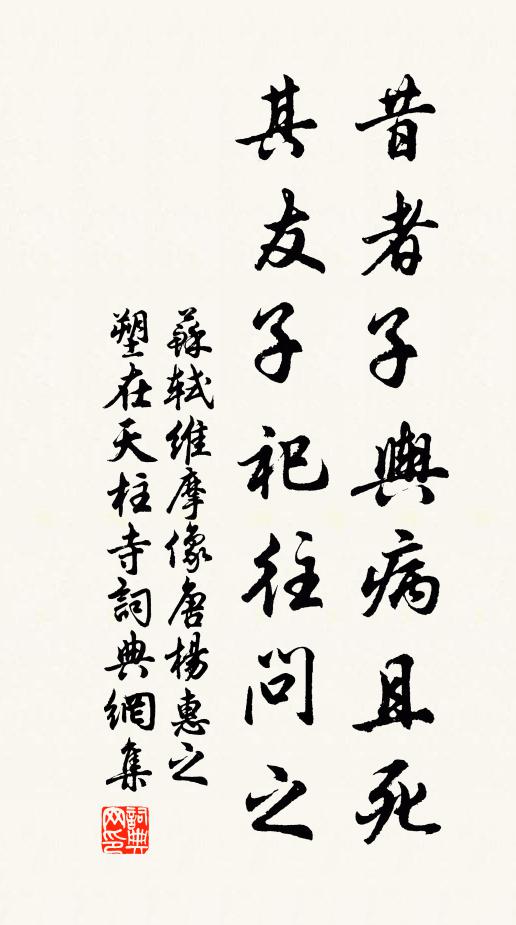 昔者子輿病且死
其友子祀往問之
蘇軾維摩像唐楊惠之
塑在天柱寺詞典網集
詞典网印